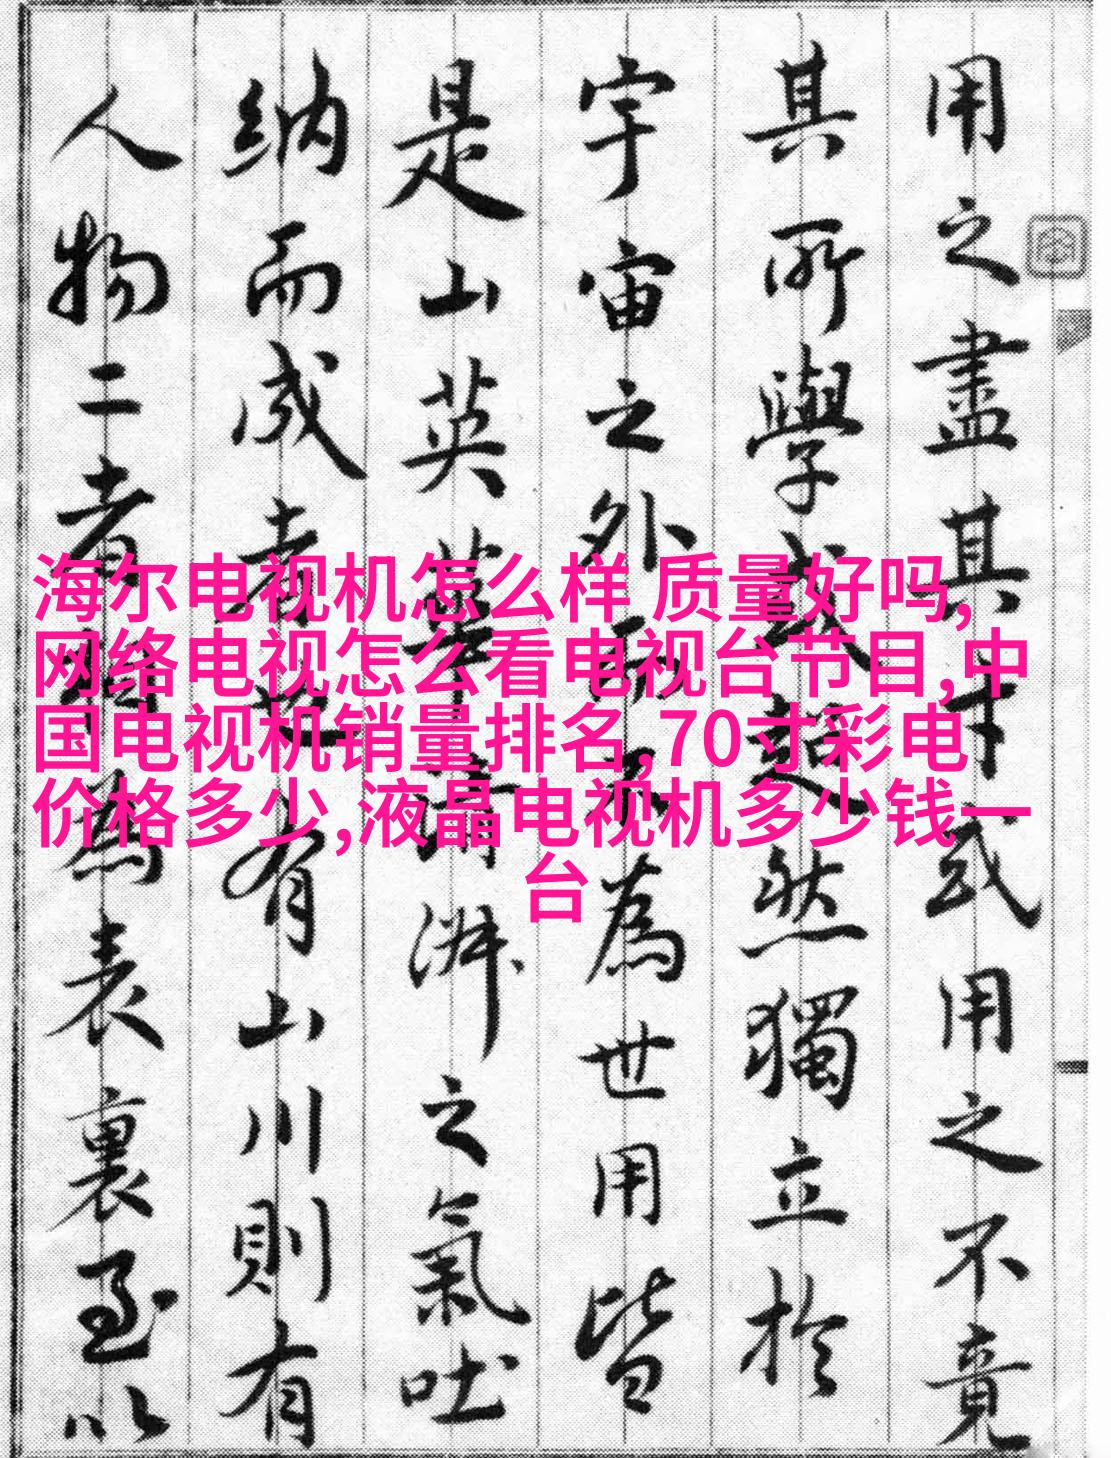 海尔电视机怎么样 质量好吗,
网络电视怎么看电视台节目,中
国电视机销量排名,70寸彩电
价格多少,液晶电视机多少钱一
台
用之盡其才或用之不竟
其所學或超然獨立於
宇宙之外而不為世用皆
是山英華清淋之氣吐
納而成者也有山川則有
人物二者相為表裏至以